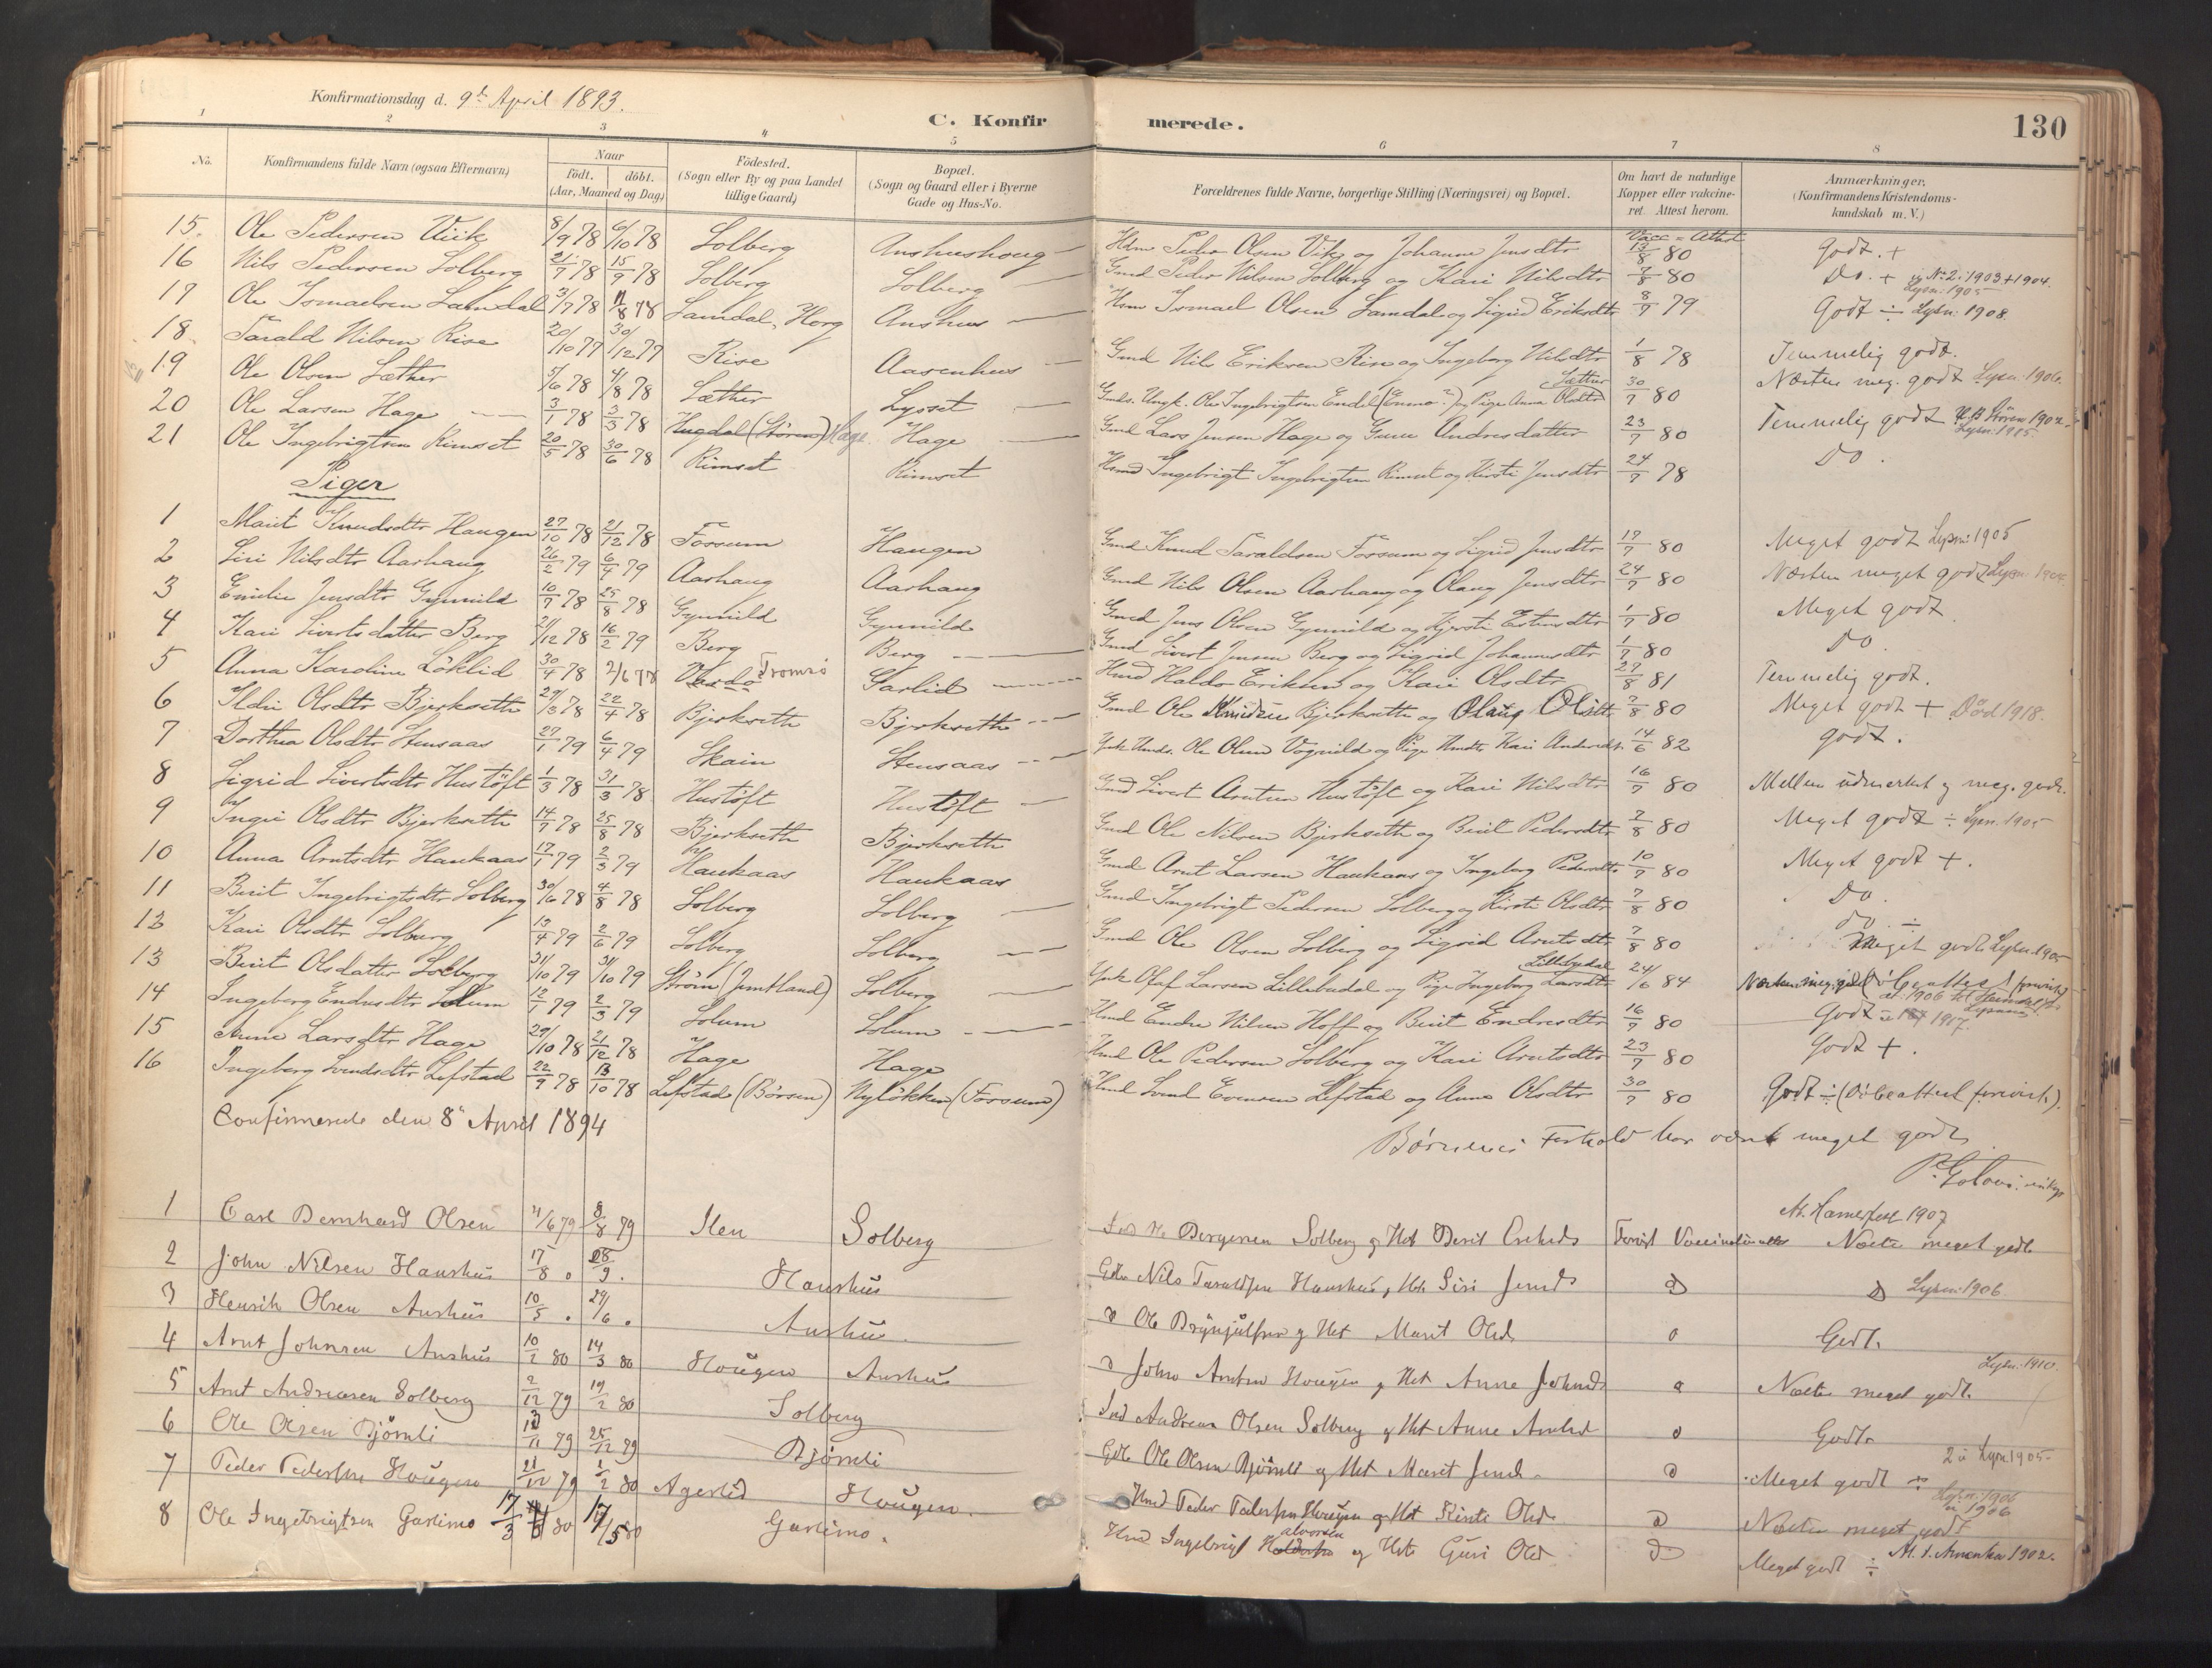 Konfirmationsdag d. 9de April 1893.
C. Konfirmerede.
130
1 2 3 4 5 6 7 8
No. Konfirmandens fulde Navn (ogsaa Efternavn) Naar født. døbt. (Aar, Maaned og Dag) Födested. (Sogn eller By og paa Landet tillige Gaard) Bopæl. (Sogn og Gaard eller i Byerne Gade og Hus-No. Forældrenes fulde Navne, borgerlige Stilling (Næringsvei) og Bopæl. Om havt de naturlige Kopper eller vakcineret. Attest herom. Anmærkninger. (Konfirmandens Kristendomskundskab m. V.)
Vacc = Attest
15. Ole Pedersen Viik 8/9 78 6/10 78 Solberg Anshushoug Hsm Peder Olsen Vik og Johanna Jensdtr 13/8 80 Godt. +
16 Nils Pedersen Solberg 21/7 78 15/9 78 Solberg Solberg Gmd Peder Nilsen Solberg og Kari Nilsdtr 7/8 80 Do. + No 2: 1903 + 1904. Lysn: 1905
17 Ole Ismaelsen Samdal 3/7 78 11/8 78 Samdal, Horg Anshus Hsm Ismael Olsen Samdal og Sigrid Eriksdtr 8/7 79 Godt ÷ Lysn: 1908.
18. Tarald Nilsen Rise 20/10 77 30/12 77 Rise Aasenhus Gmd Nils Eriksen Rise og Ingeborg Nilsdtr 1/8 78 Temmelig godt.
19. Ole Olsen Sæther 5/6 78 4/8 78 Sæther Lysset Gmds. Ungk. Ole Ingebrigtsen Endal (Enmo?) og Pige Anna Olsdtr Sæther 30/7 80 Næsten meg. godt Lysn: 1906.
20 Ole Larsen Hage 3/1 78 3/3 78 Hugdal (Støren) Hage. Hage Gmd Lars Jensen Hage og Guru Andersdatter 23/7 80 Temmelig godt Støren 1902. Lysn: 1915.
21 Ole Ingebrigtsen Rimset 20/5 78 30/6 78 Rimset Rimset Hsmd Ingebrigt Ingebrigtsen Rimset og Kirsti Jensdtr 24/7 78 Do.
Piger
1 Marit Knudsdtr Haugen 27/10 78 21/12 78 Fossum Haugen Gmd Knud Taraldsen Fossum og Sigrid Jensdtr 17/7 80 Meget godt Lysn: 1905
2 Siri Nilsdtr Aarhaug 26/2 79 6/4 79 Aarhaug Aarhaug Gmd Nils Olsen Aarhaug og Olaug Jensdtr 24/7 80 Næsten meget godt Lysn: 1904.
3 Emilie Jensdtr Gynnild 10/7 78 25/8 78 Gynnild Gynnild Gmd Jens Olsen Gynnild og Kjersti Estensdtr 1/7 80 Meget godt.
4 Kari Sivertsdatter Berg 21/12 78 16/2 79 Berg Berg Gmd Sivert Jensen Berg og Sigrid Johannesdtr 1/7 80 Do.
5 Anna Karoline Löklid 30/4 78 2/6 78 Vardö Tromsö Sarlid Hmd Haldo Eriksen og Kari Olsdtr 27/8 81 Temmelig godt.
6 Ildri Olsdtr Bjerksetth 29/3 78 22/4 78 Bjerksetth Bjerksetth Gmd Ole Knudsen Bjerksetth og Olaug Olsdtr 7/8 80 Meget godt + Död 1918.
7 Dorthea Olsdtr Stensaas 27/1 79 6/4 79 Skain Stensaas Ynk Hmds. Ole Olsen Vognild og Pige Hmdt Kari Andersdt. 14/6 82 godt.
8 Sigrid Sivertsdtr Hustöft 1/3 78 31/3 78 Hustöft Hustöft Gmd Sivert Arntsen Hustöft og Kari Nilsdtr 16/7 80 Mellem udmerket og meg. godt.
9 Ingri Olsdtr Bjerksetth 14/7 78 25/8 78 Bjerksetth Bjerksetth Gmd Ole Nilsen Bjerksetth og Berit Pedersdtr 7/8 80 Meget godt ÷ Lysn. 1905
10 Anna Arntsdtr Haukaas 17/1 79 2/3 79 Haukaas Haukaas Gmd Arnt Larsen Haukaas og Ingeborg Pedersdtr 10/7 80 Meget godt +.
11 Berit Ingebrigtsdtr Solberg 30/6 78 4/8 78 Solberg Solberg Gmd Ingebrigt Pedersen Solberg og Kirsti Olsdtr 7/8 80 Do.
13 Kari Olsdtr Solberg 13/4 79 2/6 79 Solberg Solberg Gmd Ole Olsen Solberg og Sigrid Arntsdtr 7/8 80 do. ÷ Meget godt. Lysn. 1905
13 Berit Olsdatter Solberg 31/10 79 31/10 79 Ström (Jemtland) Solberg Ynk Olaf Larsen Lillebudal og Pige Ingeborg Larsdtr Lillebudal 24/6 84 Næsten meg. godt
14 Ingeborg Endresdtr Solum 12/1 79 2/3 79 Solum Solum Hmd Endre Nilsen Hoff og Berit Endresdtr 16/7 80 Godt 1917.
15 Anne Larsdtr Hage 29/10 78 21/12 78 Hage Hage Hmd Ole Pedersen Solberg og Kari Arntsdtr 23/7 80 Godt +.
16 Ingeborg Svendsdtr Lefstad 22/9 78 13/10 78 Lefstad (Börsen) Nylökken (Fossum) Hmd Svend Evensen Lefstad og Anne Olsdtr 30/7 80 Godt ÷ (Döbeattest forevist).
Confirmerede den 8de April 1894
Børnenes Forhold har været meget godt
1 Carl Bernhard Olsen 11/6 79 3/8 79 Ilen Solberg Bergersen Solberg og Hst Berit Forvist Vaccinationsattest At. Hamerfest 1907 Næsten meget godt
2 John Nilsen Haushus 17/8 28/9 Haushus Nils Taraldsen Haushus og Hst Siri Jensd D D Lysn: 1906
3 Henrik Olsen Aushus 10/5 29/6 Aushus. D Ole Brynjulfsen og Hst Marit Olsd D Godt.
4 Arnt Johnsen Aushus 10/2 80 14/3 80 Hougen Aushus D John Arntsen Hougen og Hst Anne Johnsd D Næsten meget godt. Lysn: 1910.
5 Arnt Andreasen Solberg 2/12 79 19/2 80 Solberg Ind Andreas Olsen Solberg og Hst Anne Arntsd D Godt.
6 Ole Olsen Bjömli 13/11 79 25/12 79 Bjömli Ole Olsen Bjömli og Hst Marit Jensd. D Meget godt ÷ Lysn 1905
7 Peder Pedersen Hougen 21/12 79 1/2 80 Agerlid Hougen. Hmd Peder Pedersen Hougen og Hst Kirsti Olsd. D Næsten meget godt Lysn: 1906
8 Ole Ingebrigtsen Garlimo 17/3 80 17/5 80 Garlimo. Hmd Ingebrigt Halvorsen og Hst Guri Olsd D Meget godt ÷ At. t. Amerika 1902.